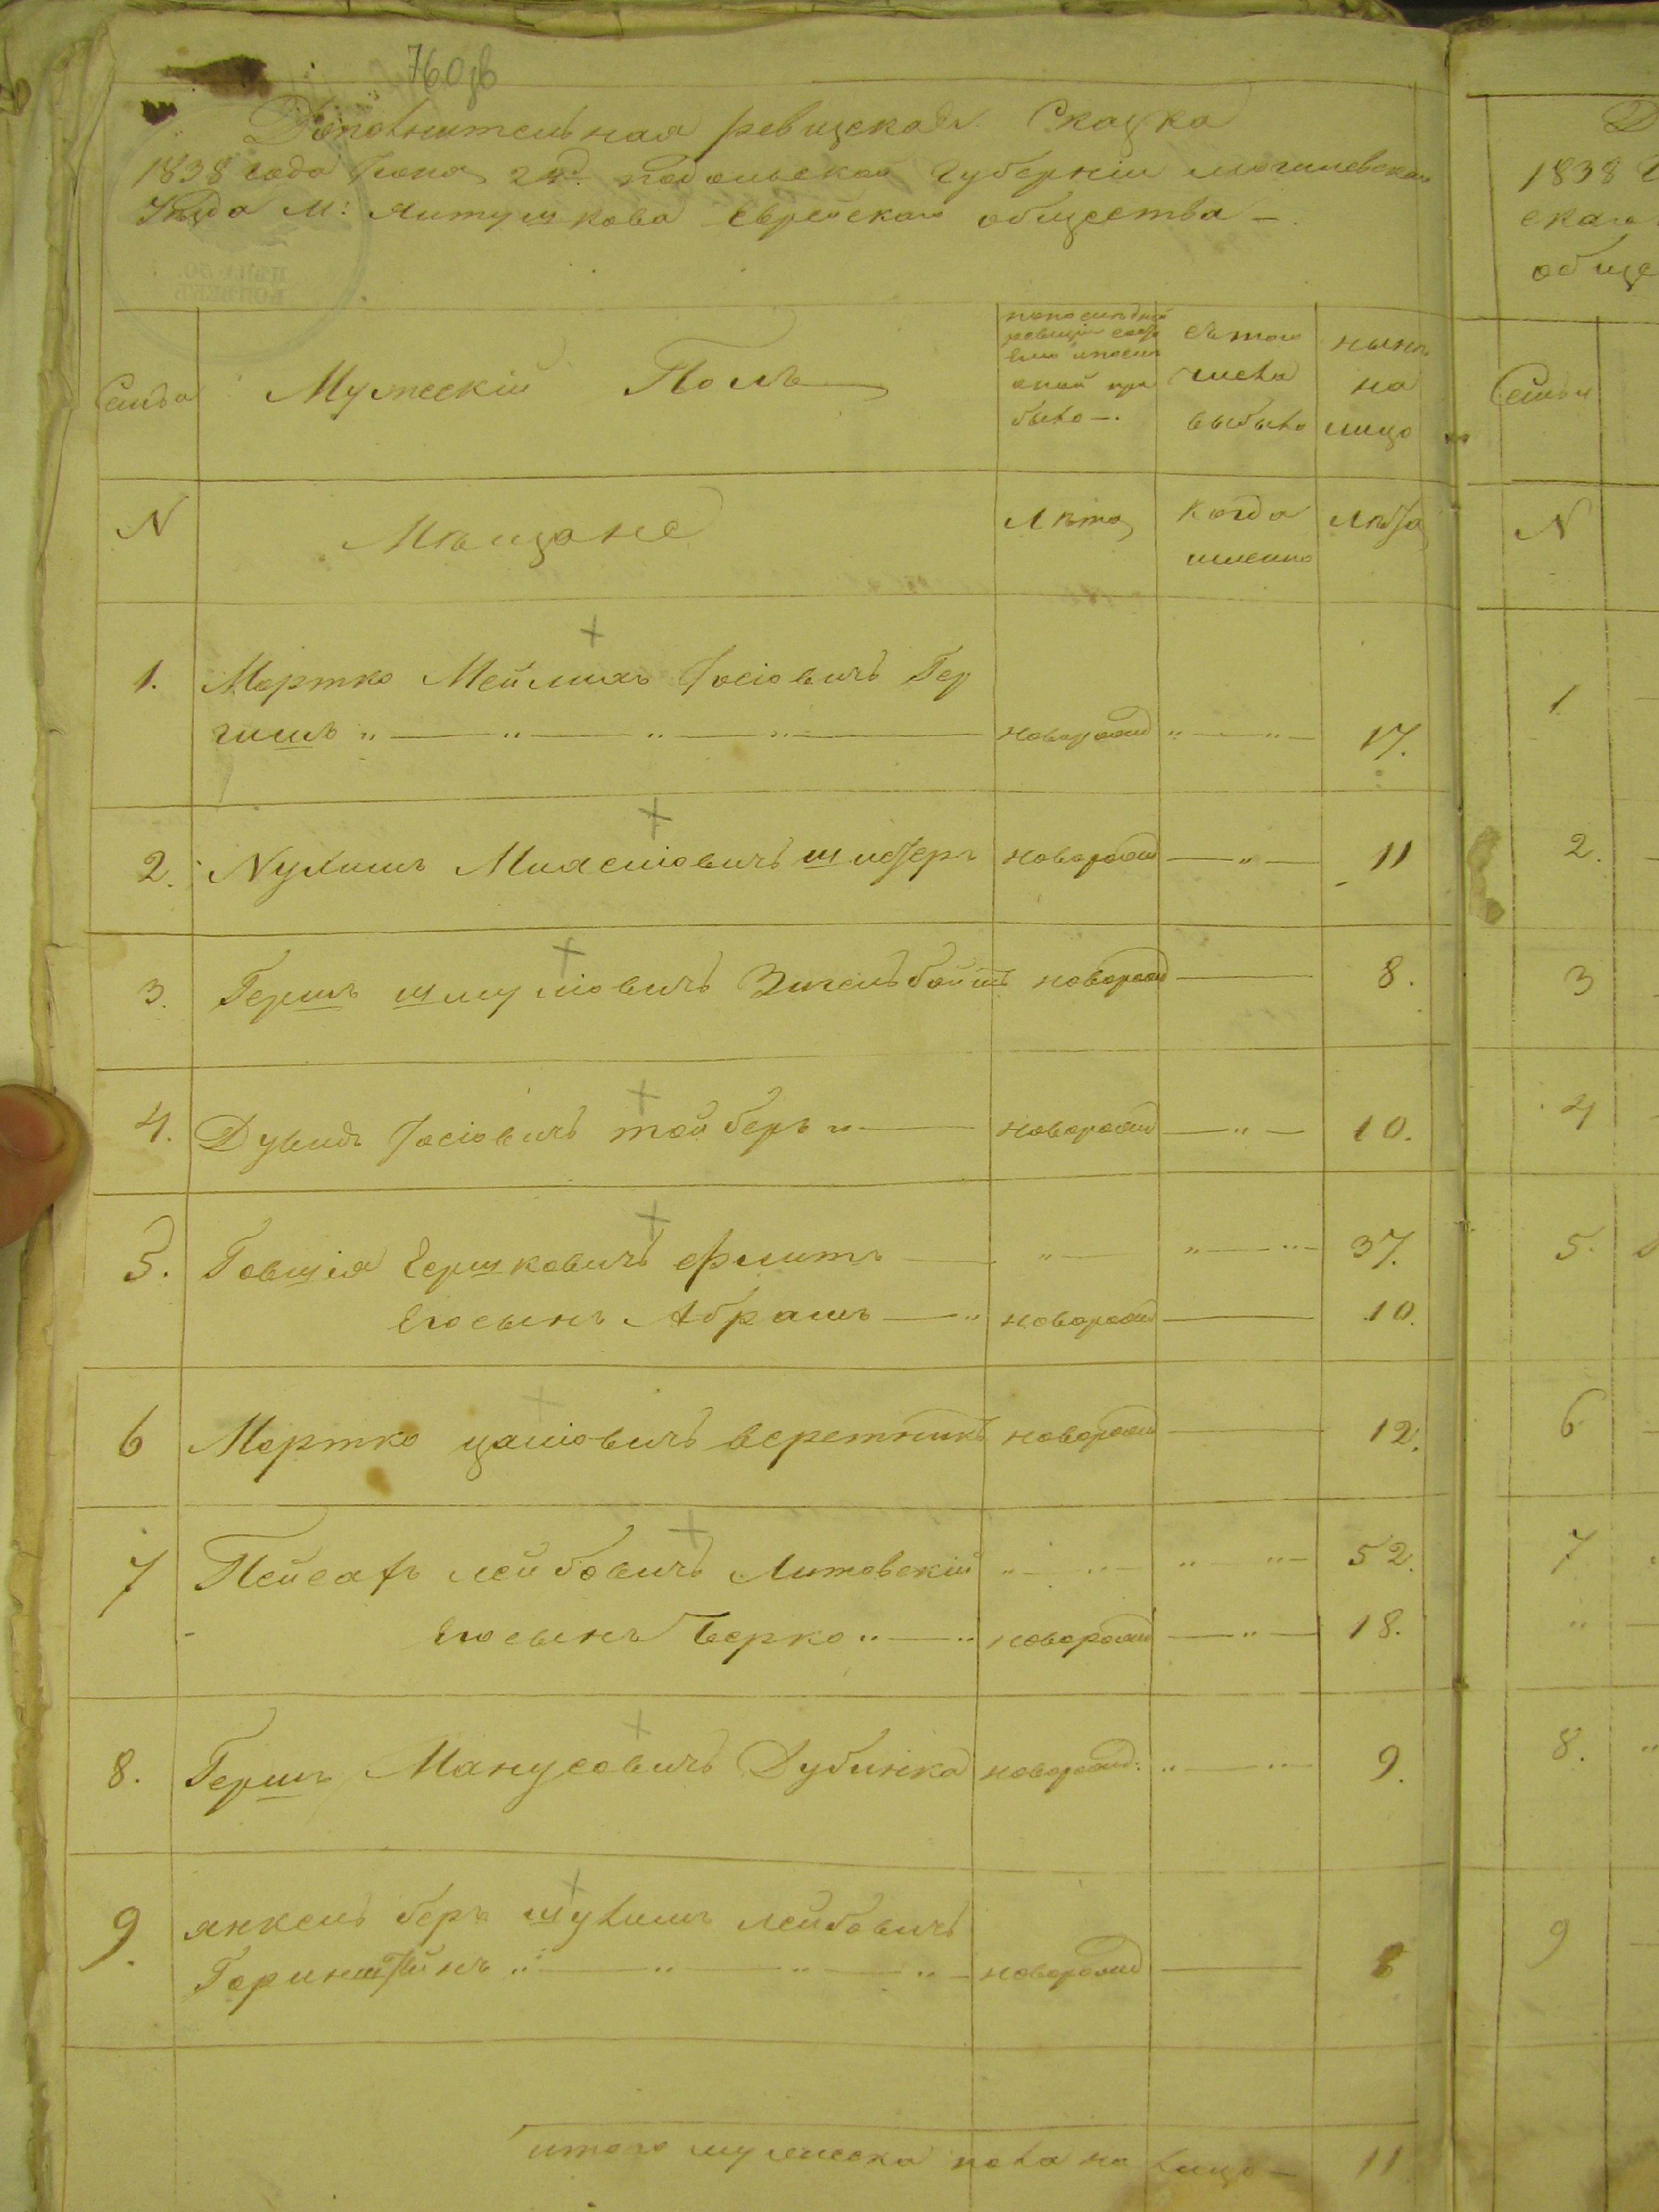 760об
Дополнительная ревижская Сказка
1838 года Июня 2го Подольской Губерніи могилевскаго
Уѣзда м: Ялтушкова Еврейскаго общества —
Семья
Мужескій Полъ
по последней ревизіи состояло и после оной при было —.
Съ того числа выбыло
нынѣ на лицо
N
Мѣщане
Лѣта
Когда именно
Лѣта
1. Мортко Меилихъ Іосіовичъ Гер
новорожд 17.
2. Нухимъ Шлаферъ новорожд 11
3. Гершъ Шмуліовичъ Зигельбоймъ новорожд 8.
4. Дувидъ Іосіовичъ тойберъ новорожд 10.
5. Говшія Гершковичъ Флитъ 37.
Его сынъ Абрамъ новорожд 10.
6 Мортко цаліовичъ веретникъ новорожд 12.
7 Пейсахъ лейбовичъ Литовскій 52.
Его сынъ Берко новорожд 18.
8. Гершъ Манусовичъ Дубинка новорожд: 9.
9. янкель беръ шулимъ лейбовичъ
Горинштейнъ новорожд 8
итого мужеска пола на лицо — 11
Д
1838 г
скаго
обще
Семьи
N
1
2.
3
4
5.
6
7
8.
9